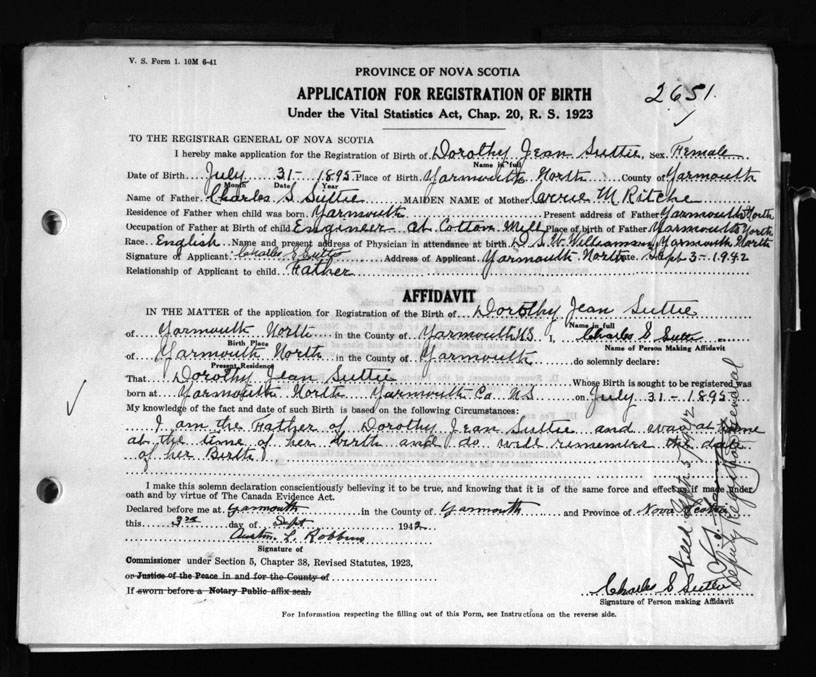 V. S. Form 1. 10M 6-41
PROVINCE OF NOVA SCOTIA
APPLICATION FOR REGISTRATION OF BIRTH
2651
Under the Vital Statistics Act, Chap. 20, R. S. 1923
TO THE REGISTRAR GENERAL OF NOVA SCOTIA
I hereby make application for the Registration of Birth of Dorothy Jean Suttie, Sex Female
Name in full
Date of Birth July 31- 1895 Place of Birth Yarmouth North County of Yarmouth
Month Date Year
Name of Father Charles S Suttie MAIDEN NAME of Mother Carrie M Ritchie
Residence of Father when child was born Yarmouth Present address of Father Yarmouth North
Occupation of Father at Birth of child Engineer at Cotton Mill Place of birth of Father Yarmouth North
Race English Name and present address of Physician in attendance at birth D. S. W. Williamson Yarmouth North
Signature of Applicant Charles S Suttie Address of Applicant Yarmouth North Date Sept 3-1942
Relationship of Applicant to child Father
AFFIDAVIT
IN THE MATTER of the application for Registration of the Birth of Dorothy Jean Suttie
Name in full
of Yarmouth North in the County of Yarmouth N.S I, Charles S Suttie
Birth Place Name of Person Making Affidavit
of Yarmouth North in the County of Yarmouth do solemnly declare:
Present Residence
That Dorothy Jean Suttie Whose Birth is sought to be registered was
born at Yarmouth North Yarmouth Co N.S on July 31-1895
My knowledge of the fact and date of such Birth is based on the following Circumstances:
I am the Father of Dorothy Jean Suttie and was at home
at the time of her birth and do well remember the date
of her Birth
I make this solemn declaration conscientiously believing it to be true, and knowing that it is of the same force and effect as if made under
oath and by virtue of The Canada Evidence Act.
Declared before me at Yarmouth in the County of Yarmouth and Province of Nova Scotia
this 3rd day of Sept 1942
Austin L. Robbins
Signature of
Commissioner under Section 5, Chapter 38, Revised Statutes, 1923,
or Justice of the Peace in and for the County of
If sworn before a Notary Public affix seal.
Charles S Suttie
Signature of Person making Affidavit
For Information respecting the filling out of this Form, see Instructions on the reverse side.
Deputy Registrar General